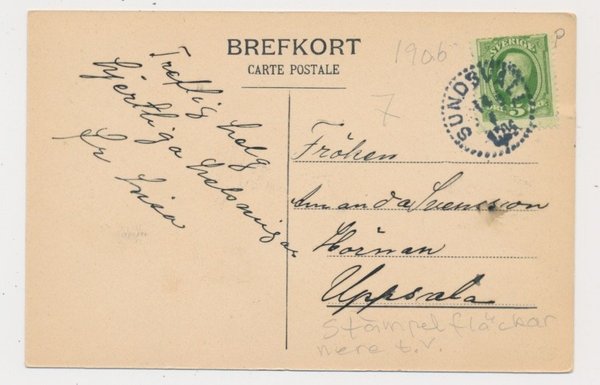 BREFKORT
CARTE POSTALE
1906
P
SVERIGE
5
SUNDSVALL
7
Treflig helg
hjertliga helsningar
Fröken
Amanda Svensson
Hörnan
Uppsala
Stämpelfläckar
nere t.v.